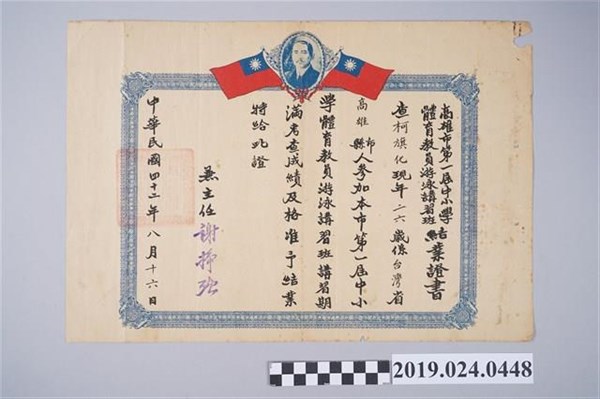 高雄市第一屆中小學
體育教員游泳講習班
結業證書
查柯旗化現年二六歲係台灣省
高雄市縣人參加本市第一屆中小
學體育教員游泳講習班講習期
滿考查成績及格准予結業
特給此證
兼主任謝掙强
中華民國四十三年八月十六日
2019.024.0448